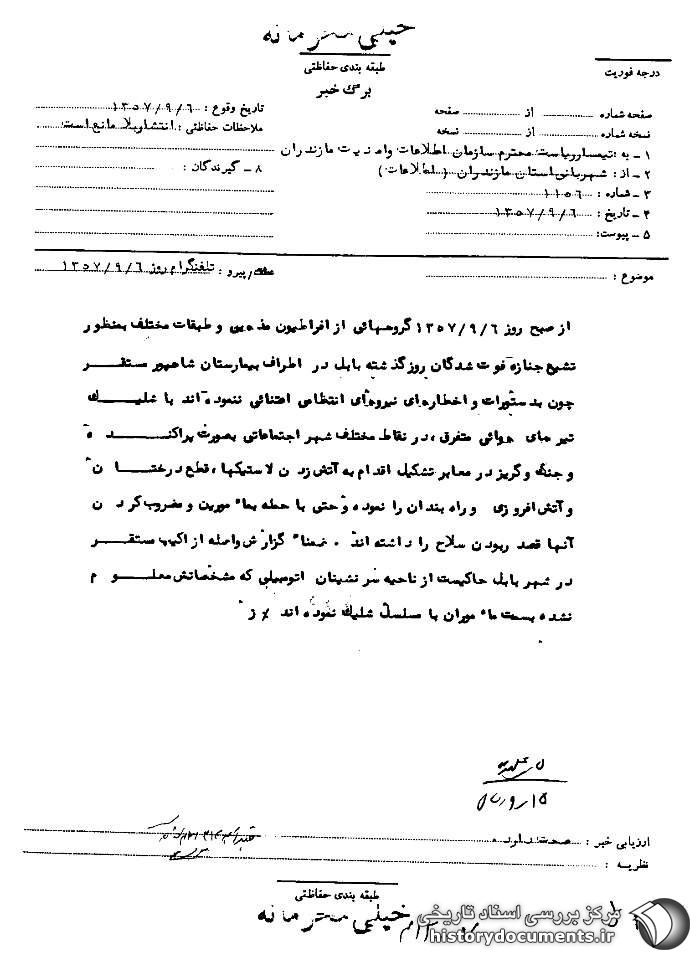 خیلی محرمانه
طبقه بندی حفاظتی
درجه فوریت
برگ خبر
صفحه شماره از صفحه
تاریخ وقوع : ۱۳۵۷/۹/۶
نسخه شماره از نسخه
ملاحظات حفاظتی : انتشاربلا مانع است
۱ ـ به : تیمسارریاست محترم سازمان اطلاعات وامنیت مازندران
۲ ـ از : شهربانی استان مازندران ( اطلاعات )
۸ ـ گیرندگان :
۳ ـ شماره : ۱۱۵۶
۴ ـ تاریخ : ۱۳۵۷/۹/۶
۵ ـ پیوست:
موضوع :
پیرو : تلفنگرام روز ۱۳۵۷/۹/۶
از صبح روز ۱۳۵۷/۹/۶ گروههائی از افراطیون مذهبی و طبقات مختلف بمنظور
تشیع جنازه فوت شدگان روزگذشته بابل در اطراف بیمارستان شاهپور مستقر
چون بدستورات و اخطارهای نیروهای انتظامی اعتنائی ننموده اند با شلیک
تیرهای هوائی متفرق ، در نقاط مختلف شهر اجتماعاتی بصورت پراکنده
و جنگ وگریز در معابر تشکیل اقدام به آتش زدن لاستیکها، قطع درختان
و آتش افروزی و راه بندان را نموده وحتی با حمله بمامورین و مضروب کردن
آنها قصد ربودن سلاح را داشته اند . ضمناً گزارش واصله از اکیپ مستقر
در شهر بابل حاکیست از ناحیه سرنشینان اتومبیلی که مشخصاتش معلوم
نشده بسمت ماموران با مسلسل شلیک نموده اند ٪ ز
ارزیابی خبر : صحت دارد .
نظریه :
طبقه بندی حفاظتی
خیلی محرمانه
مرکز بررسی اسناد تاریخی
historydocuments.ir